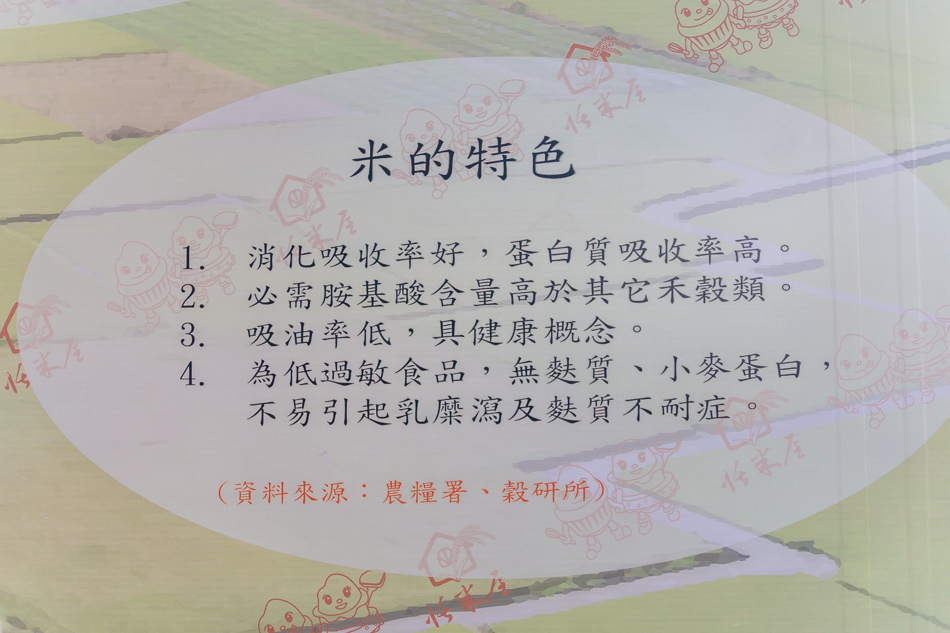 米的特色
1. 消化吸收率好，蛋白質吸收率高。
2. 必需胺基酸含量高於其它禾穀類。
3. 吸油率低，具健康概念。
4. 為低過敏食品，無麩質、小麥蛋白，
不易引起乳糜瀉及麩質不耐症。
（資料來源：農糧署、穀研所）